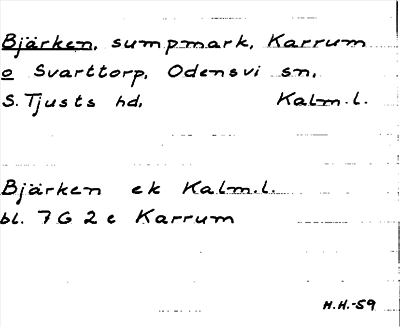 Bjärken, sumpmark, Karrum
o Svarttorp, Odensvi sn,
S. Tjusts hd, Kalm.l.
Bjärken ek Kalm.l.
bl. 7G 2e Karrum
H.H.-59